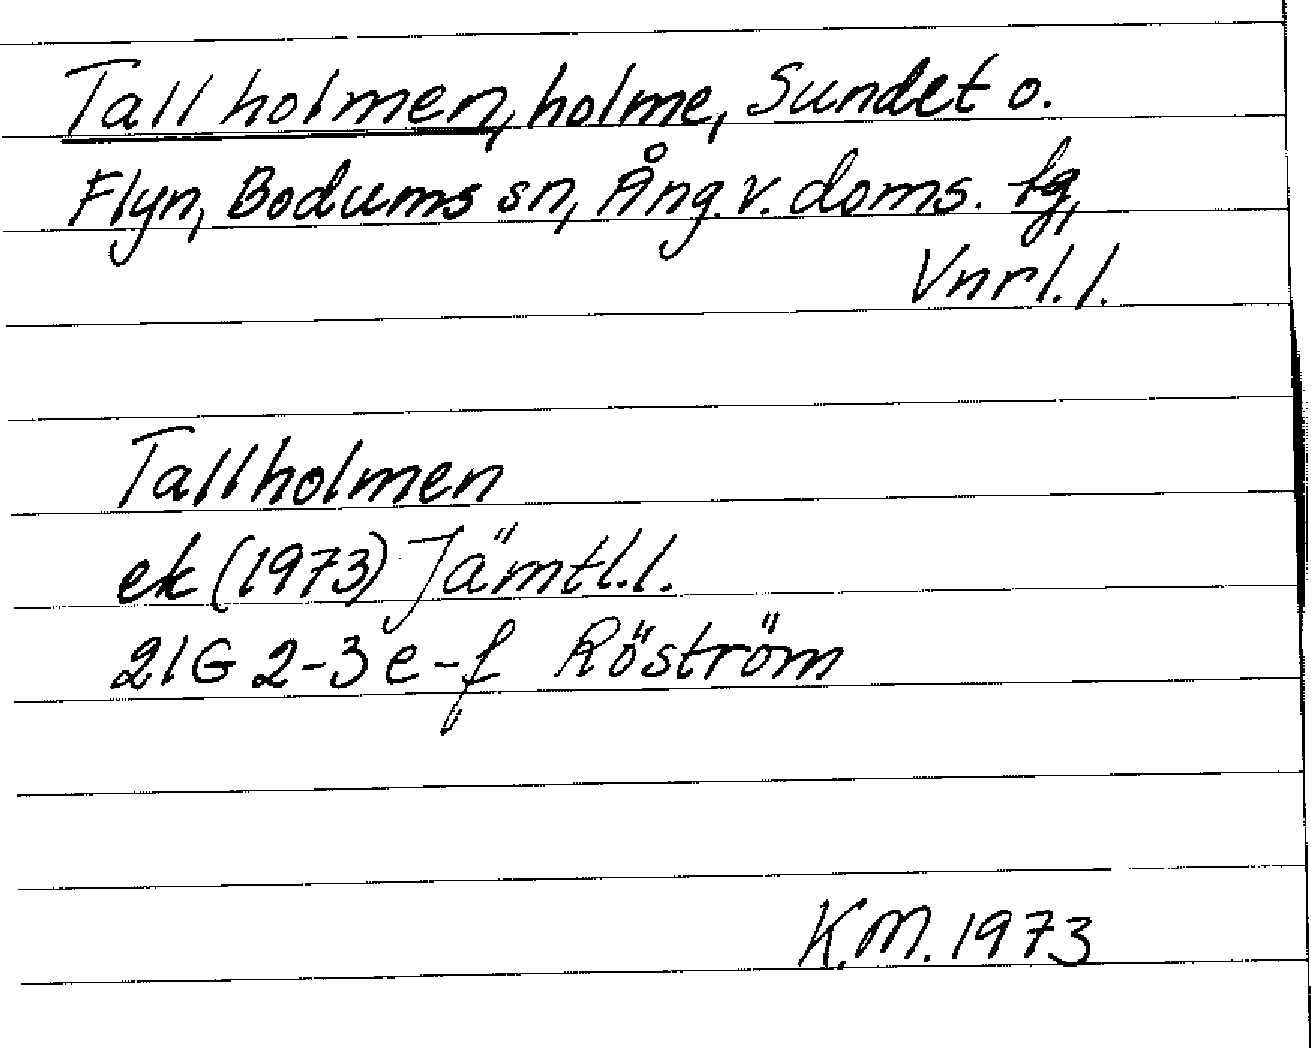 Tallholmen, holme, Sundet o.
Flyn, Bodums sn, Ång. v. doms. tg,
Vnrl. l.
Tallholmen
ek (1973) Jämtl. l.
21G 2-3 e-f Röström
K.M. 1973